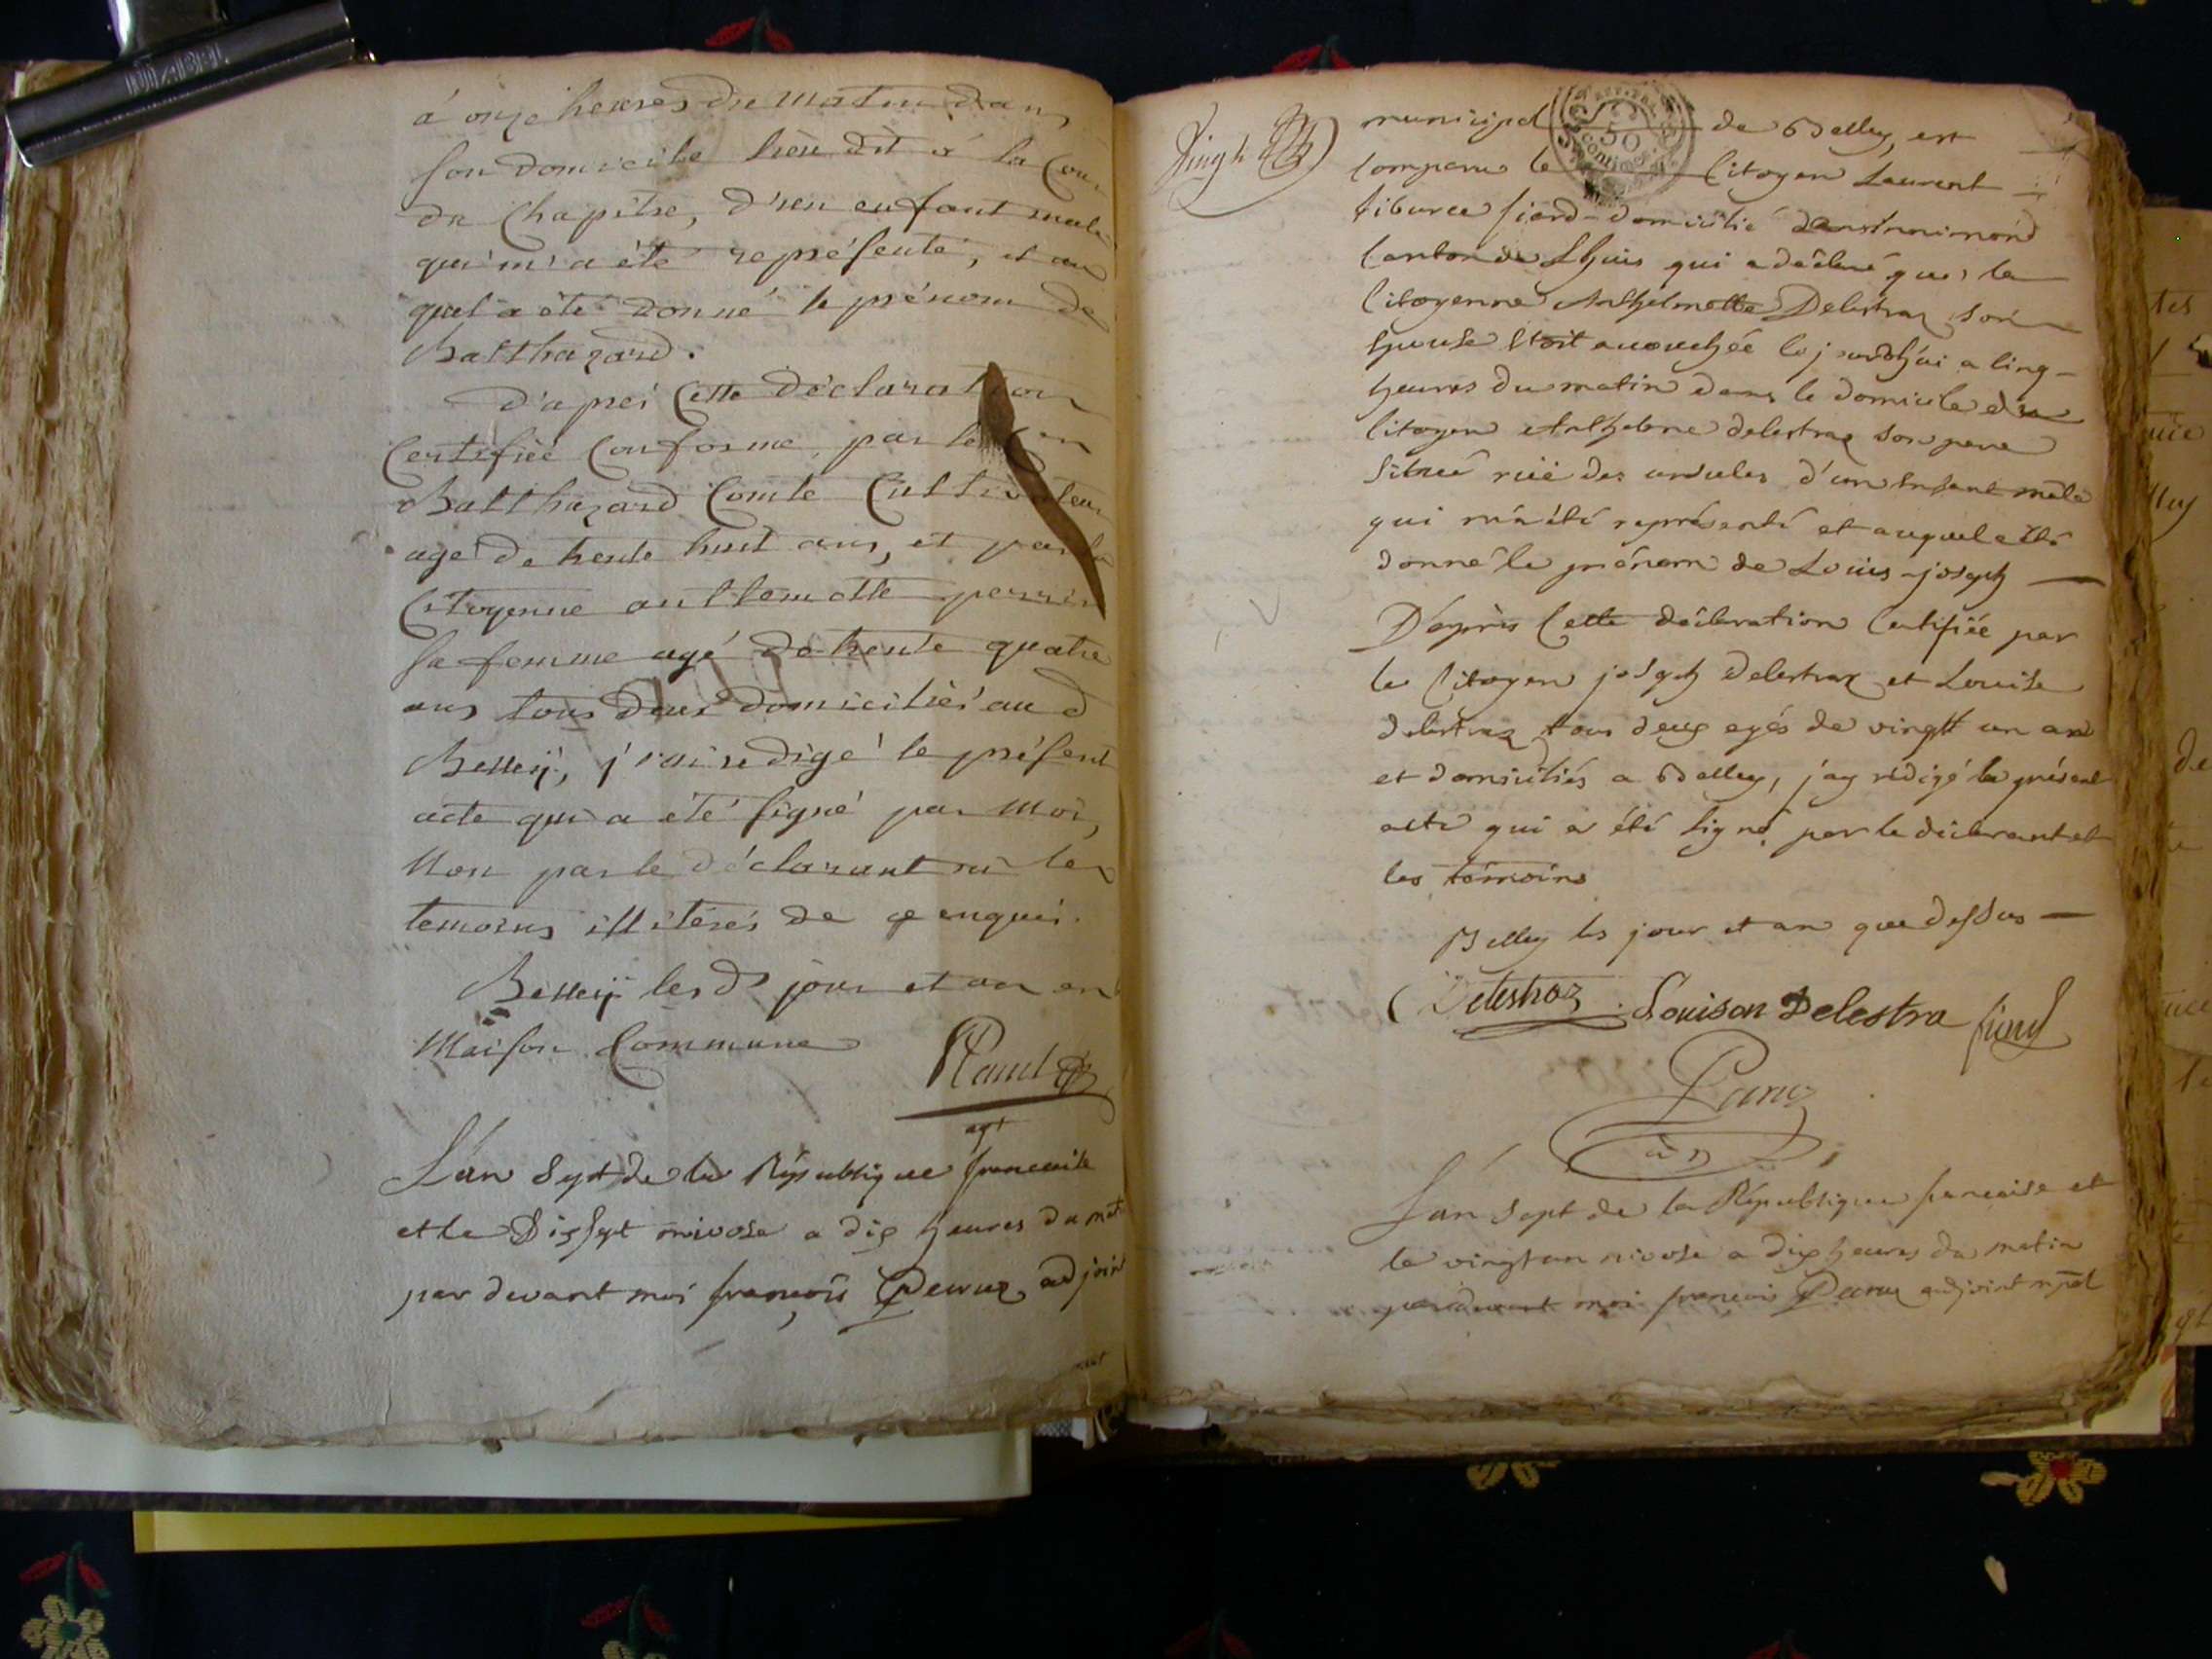 à onze heures du matin dans
son domicile lieu dit à la Cour
du Chapitre, d'un enfant male
qui m'a été représenté, et au
quel a été donné le prénom de
Balthazard.
d'aprés Cette déclaration
Certifiée Conforme, par le
Balthazard Comte Cultivateur
age de trente huit ans, et par la
Citoyenne perrin
sa femme agé de trente quatre
ans tous deux domiciliés aud
Belley, j'ai redigé le présent
acte qui a été signé par moi,
Non par le déclarant ni les
temoins illiterés de ce enquis.
Belley les d jour et an en
Maison Commune
L'an Sept de la République francaise
et le Dix sept nivose a dix heures du mat
par devant moi françois adjoint
DJABEL
municipal de Belley, est
Comparu le Citoyen Laurent
tiburce fiard domicilié
Canton de Lhuis qui a déclaré que la
Citoyenne Anthelmette Delestraz son
Epouse Etoit accouchée ce jourdhui a Cinq
heures du matin dans le domicile du
Citoyen Anthelme delestraz son pere
Situé rue des ursules d'un Enfant mâle
qui m'a été représenté et auquel a été
donné le prénom de Louis-joseph
D'après Cette déclaration Certifiée par
le Citoyen joseph Delestraz et Louise
delestraz tous deux agés de vingtt un an
et domiciliés a Belley, j'ay rédigé le présent
acte qui a été Signé par le déclarant et
les témoins
Belley les jour et an que dessus
Delestraz Louison Delestra fiard
50
centimes
L'an Sept de la République francaise et
le vingt un nivose a dix heures du matin
pardevant moi francois adjoint mpal